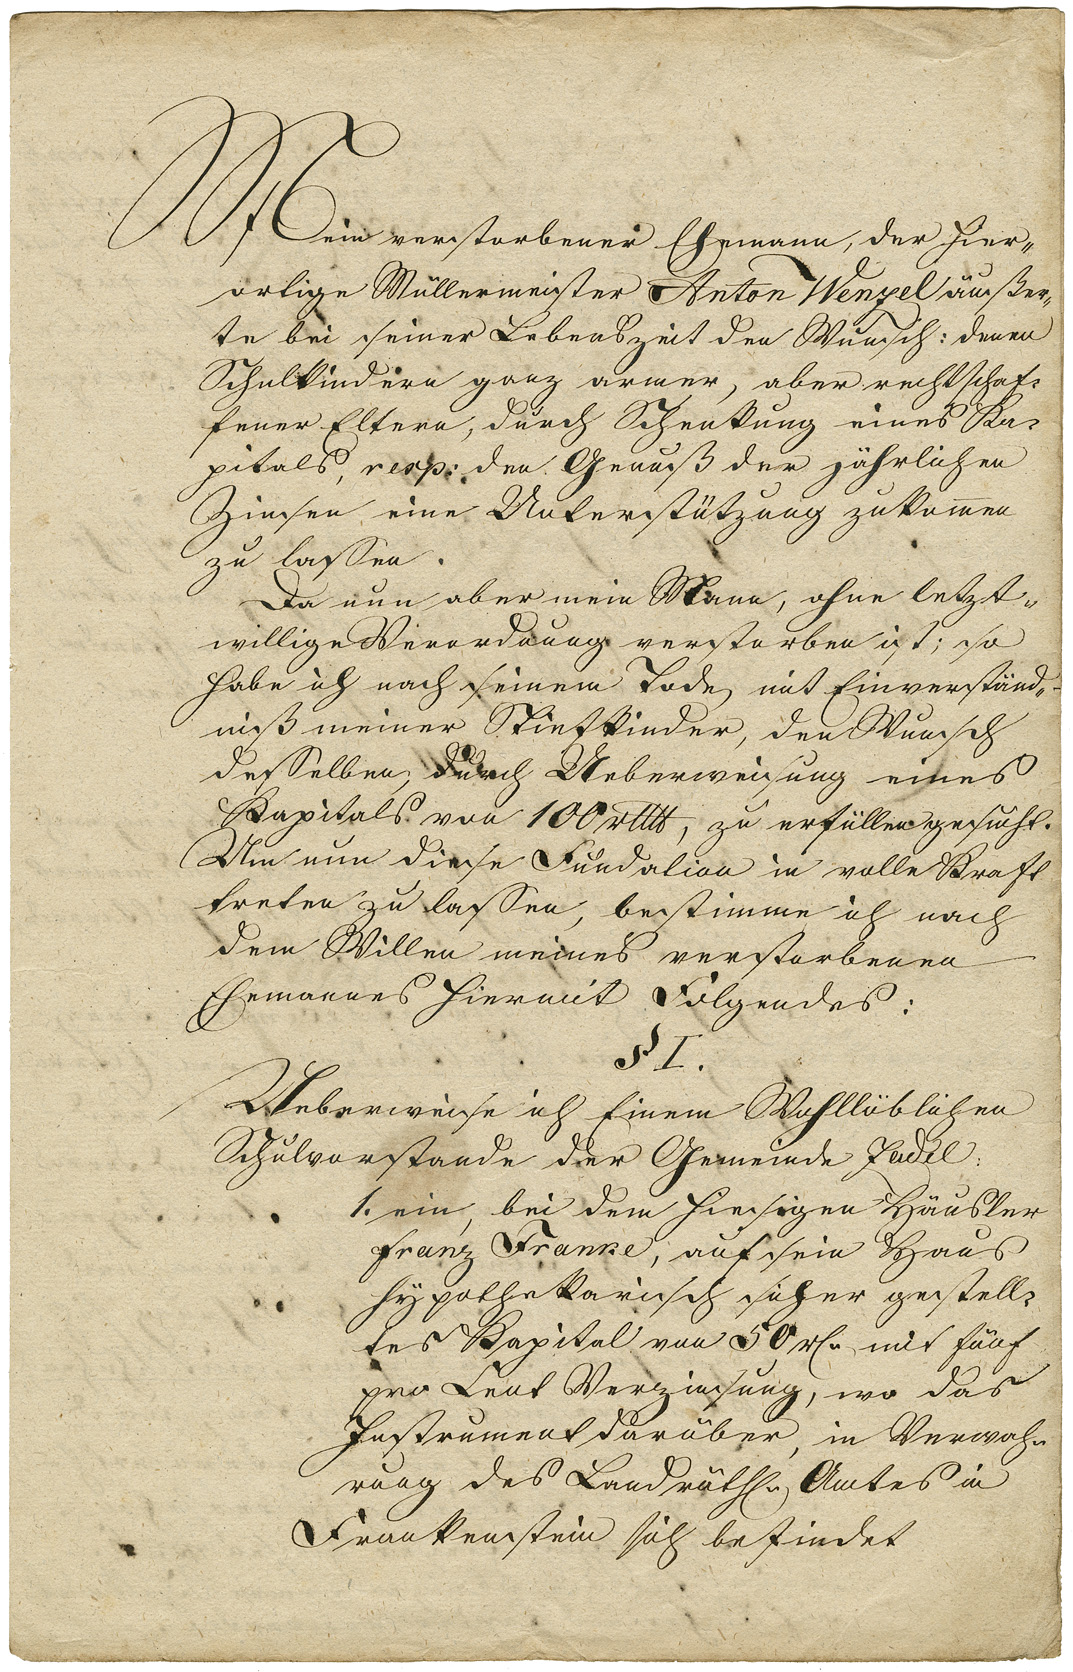 Mein verstorbener Ehemann, der hier„
ortige Müllermeister Anton Wenzel äußer„
te bei seiner Lebenszeit den Wunsch: denen
Schulkindern ganz armer, aber rechtschaf„
fener Eltern, durch Schenkung eines Ka„
pitals, resp: den Genuß der jährlichen
Zinsen eine Unterstützung zukom̅en
zu lassen.
Da nun aber mein Mann, ohne letzt„
willige Verordnung verstorben ist; so
habe ich nach seinem Tode, mit Einverständ„
niß meiner Stiefkinder, den Wunsch
desselben, durch Ueberweisung eines
Kapitals von 100 rtlr, zu erfüllen gesucht.
Um nun diese Fundation in volle Kraft
treten zu lassen, bestimme ich nach
dem Willen meines verstorbenen
Ehemannes hiermit Folgendes:
§ I.
Ueberweise ich Einem Wohllöblichen
Schulvorstande der Gemeinde Zadel:
1. ein, bei dem hiesigen Häusler
Franz Franke, auf sein Haus
hypothekarisch sicher gestell„
tes Kapital von 50 rl. mit fünf
pro Cent Verzinsung, wo das
Instrument darüber, in Verwah„
rung des Landräthl. Amtes in
Frankenstein sich befindet